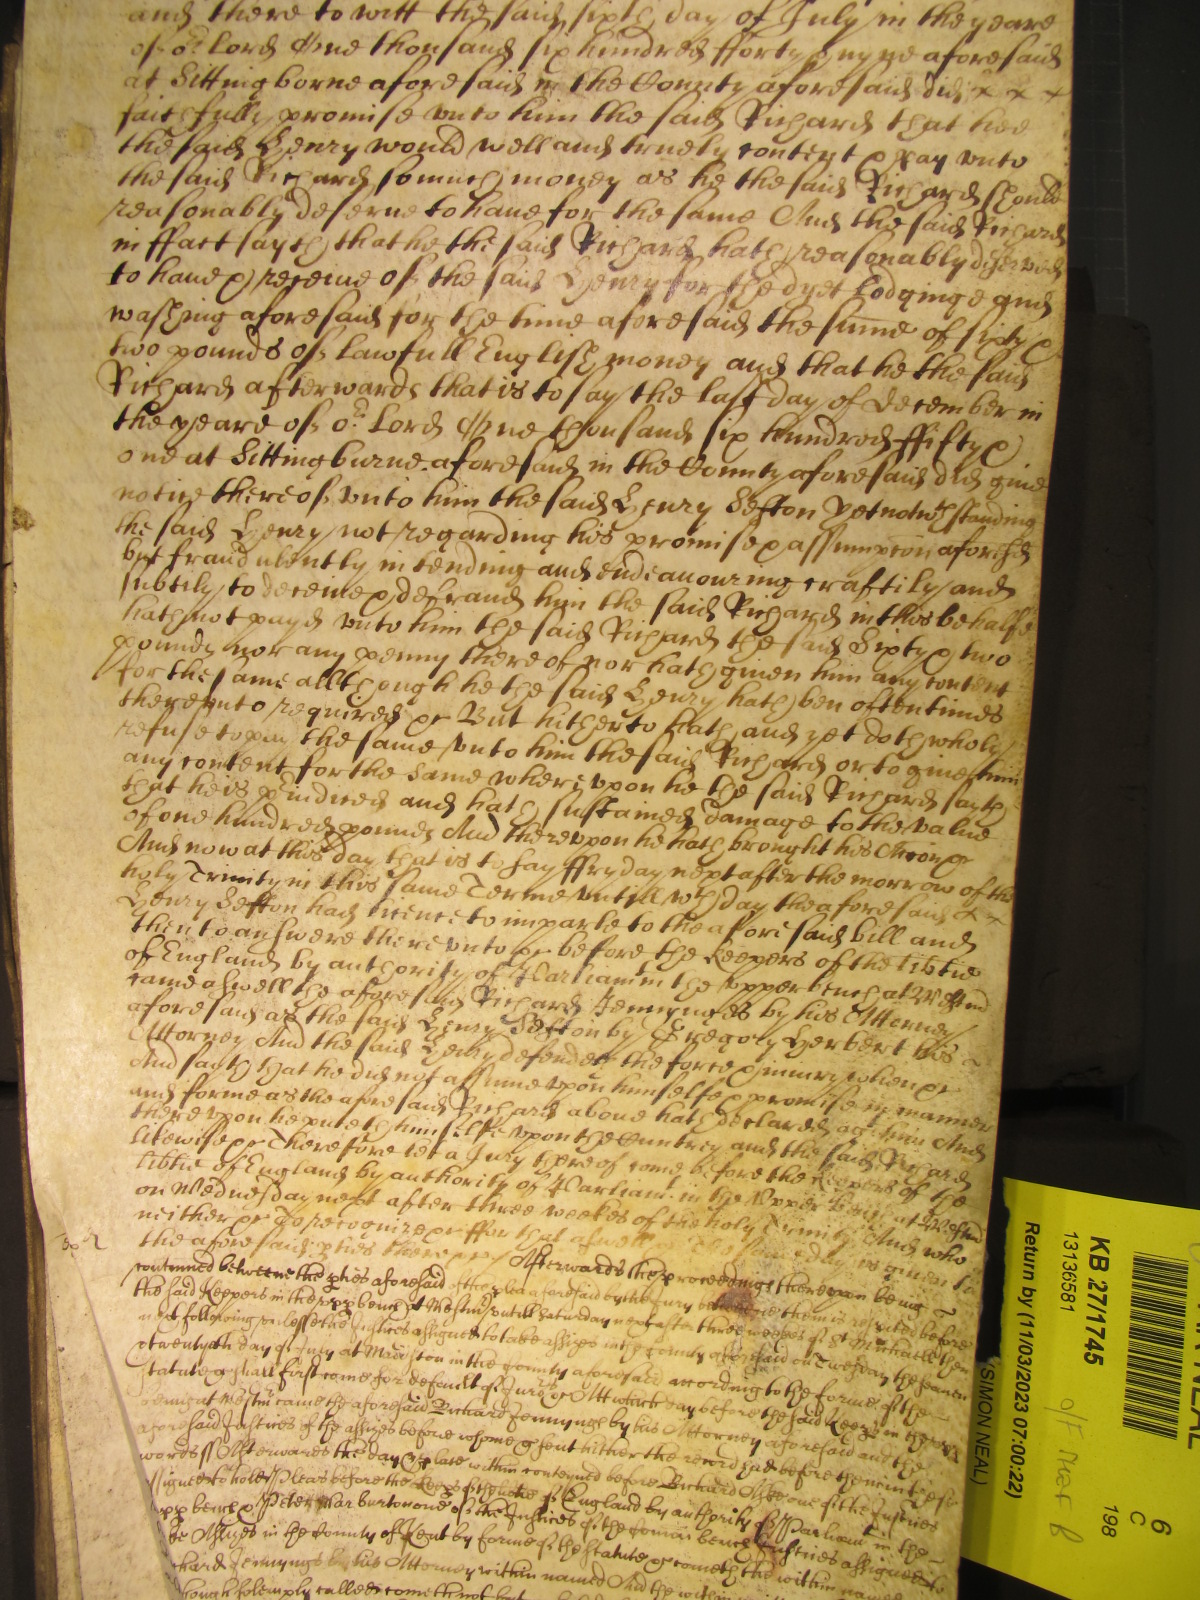 and there to witt the said sixth day of July in the yeare
of or Lord One thousand six hundred fforty & nyne aforesaid
at Sittingborne aforesaid in the County aforesaid did x x x
faithfully promise vnto him the said Richard that hee
the said Henry would well and truely content & pay vnto
the said Richard so much money as he the said Richard should
reasonably deserue to haue for the same And the said Richard
in ffact sayth that he the said Richard hath reasonably deserved
to haue & receiue of the said Henry for the dyet Lodginge and
washing aforesaid for the time aforesaid the summe of sixty &
two pounds of lawfull English money and that he the said
Richard afterwards that is to say the last day of December in
the yeare of or Lord One thousand six hundred ffifty &
one at Sittingburne aforesaid in the County aforesaid did giue
notice thereof vnto him the said Henry Sefton Yet notwthstanding
the said Henry not regarding his promise & assumpcon aforesd
but fraudulently intending and endeauouring craftily and
subtily to deceiue & defraud him the said Richard in this behalfe
hath not payd vnto him the said Richard the said Sixty & two
pounds nor any penny thereof nor hath giuen him any content
for the same allthough he the said Henry hath ben oftentimes
therevnto required &c But hitherto hath and yet doth wholy
refuse to pay the same vnto him the said Richard or to giue him
any content for the same wherevpon he the said Richard sayth
that he is & hath sustained damage to the value
of one hundred pounds And therevpon he hath brought his Accon &c
And now at this day that is to say ffryday next after the morrow of the
holy Trinity in this same Terme vntill wch day the aforesaid x x
Henry Sefton had licence to imparle to the aforesaid bill and
then to answere therevnto &c before the Keepers of the libtie
of England by authority of Parliamt in the vpper bench at Westmd
came aswell the aforesaid Richard Jennynges by his Atterney
aforesaid as the said Henry Sefton by Gregory Herbert his
Attorney And the said Henry defendeth the force & iniury when &c
And saith that he did not assume vpon himselfe & promise in manner
and forme as the aforesaid Richard aboue hath declared agt him And
therevpon he putteth himselfe vpon the Cuntrey and the said Richard
likewise &c Therefore let a Jury thereof come before the Keepers of the
libtie of England by authority of Parliamt in the Vpper bench at Westmd
on Wednesday next after three weekes of the holy Trinity And who
neither &c To recognize &c ffor that aswell &c The same day is giuen to
the aforesaid pties there &c Afterwards the proceedinge therevpon being
continued betweene the pties aforesaid of the plea aforesaid by the Jury betweene them is respited before
the said Keepers in the vpp bench at Westmr vntill Saturday next after three weekes of St Michaell then
next following vnlesse the Justices assigned to take assizes in the County aforesaid on Tuesday the
twentyeth day of July at Maidston in the County aforesaid according to the forme of the
statute &c shall first come for default of Jurors &c At which day before the said Keeps in the vpp
bench at Westmr came the aforesaid Richard Jennynges by his Attorney aforesaid and the
aforesaid Justices of the assizes before whome &c sent hither the record had before them in these
words ss Afterwards the day & place within conteyned before Richard Aske one of the Justices
assigned to hold Pleas before the Keeps of the libtie of England by authority of Parliamt in the
vpp bench & Peter Warburton one of the Justices of the Comon bench Justices assigned to
take Assizes in the County of Kent by forme of the Statute &c cometh the within named
Richard Jennyngs by his Attorney within named And the within named
though solemply called cometh not but
KB 27/1745
13136581
Return by (11/03/2023 07:00:22)
(SIMON NEAL)
6
C
198